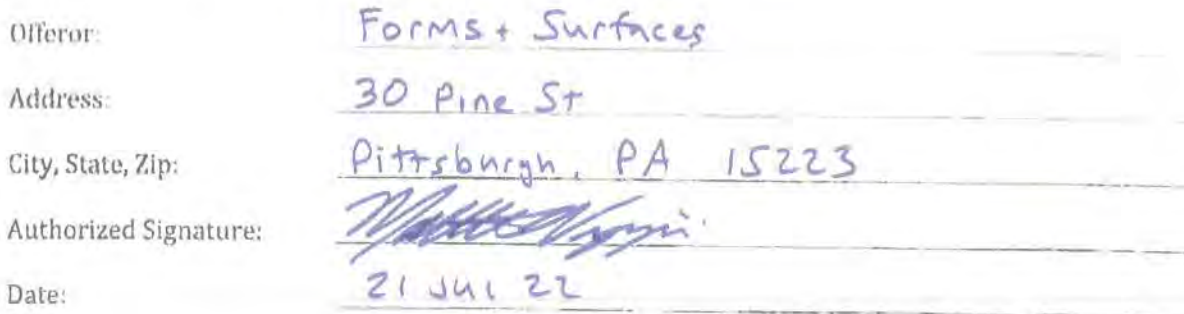 Offeror: Forms + Surfaces
Address: 30 Pine St
City, State, Zip: Pittsburgh, PA 15223
Authorized Signature:
Date: 21 Jul 22